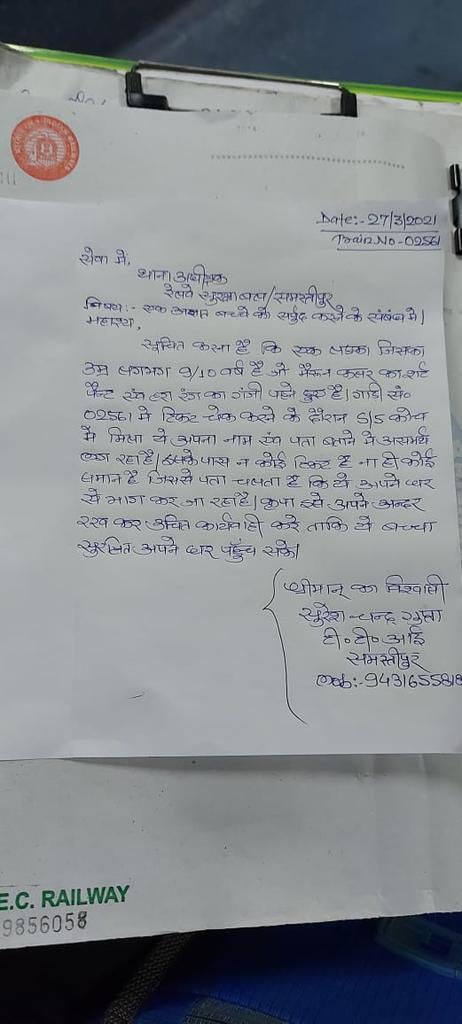 Date:- 27/3/2021
Train No- 02561
सेवा में,
थाना अधीक्षक
रेलवे सुरक्षा बल/समस्तीपुर
विषय:- एक अज्ञात बच्चे को सर्पुद करने के संबंध में।
महाशय,
सूचित करना है कि एक लड़का जिसका
उम्र लगभग 9/10 वर्ष है जो मैरून कलर का शर्ट
पैन्ट एवं हरा रंग का गंजी पहने हुए है। गाड़ी सं०
02561 में टिकट चेक करने के दौरान S/5 कोच
में मिला ये अपना नाम एवं पता बताने में असमर्थ
लग रहा है। इसके पास न कोई टिकट है ना ही कोई
समान है जिससे पता चलता है कि ये अपने घर
से भाग कर जा रहा है। कृपा इसे अपने अन्डर
रख कर उचित कार्यवाही करे ताकि ये बच्चा
सुरक्षित अपने घर पहुँच सके।
श्रीमान् का विश्वासी
सुरेश चन्द्र गुप्ता
टी० टी० आई
समस्तीपुर
Mob:- 9431655818
E.C. RAILWAY
9856058